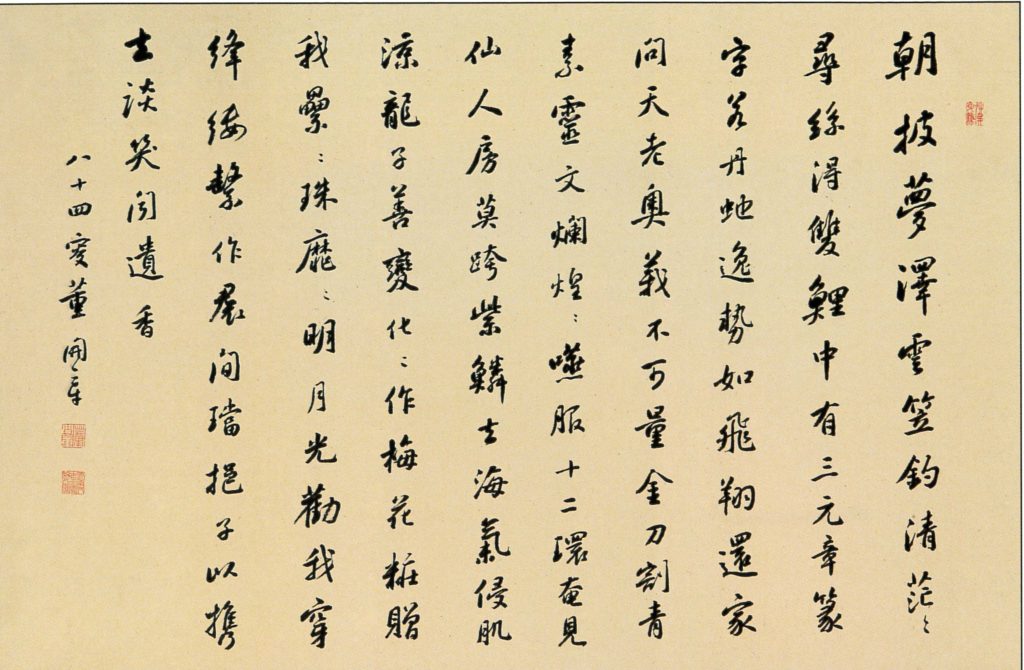 朝披夢澤雲笠釣清茫〻
尋絲得雙鯉中有三元章篆
字若丹虵逸勢如飛翔還家
問天老奧義不可量金刀割青
素靈文爛煌〻嚥服十二環奄見
仙人房莫跨紫鱗去海氣侵肌
涼龍子善變化〻作梅花粧贈
我纍〻珠靡〻明月光勸我穿
絳縷繫作裠間璫挹子以携
去談笑聞遺香
八十四叟董開章